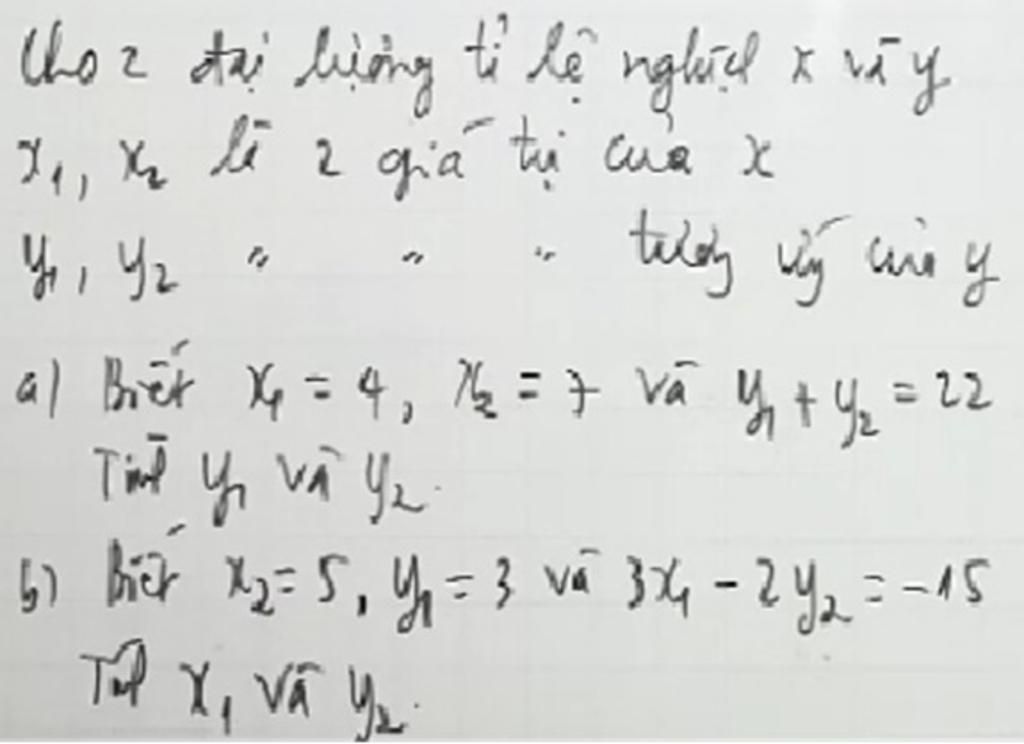 Cho 2 đại lượng tỉ lệ nghịch x và y
x₁, x₂ là 2 giá trị của x
y₁, y₂ " " " tương ứng của y
a) Biết x₁ = 4, x₂ = 7 và y₁ + y₂ = 22
Tính y₁ và y₂.
b) Biết x₂ = 5, y₁ = 3 và 3x₁ - 2y₂ = -15
Tính x₁ và y₂.